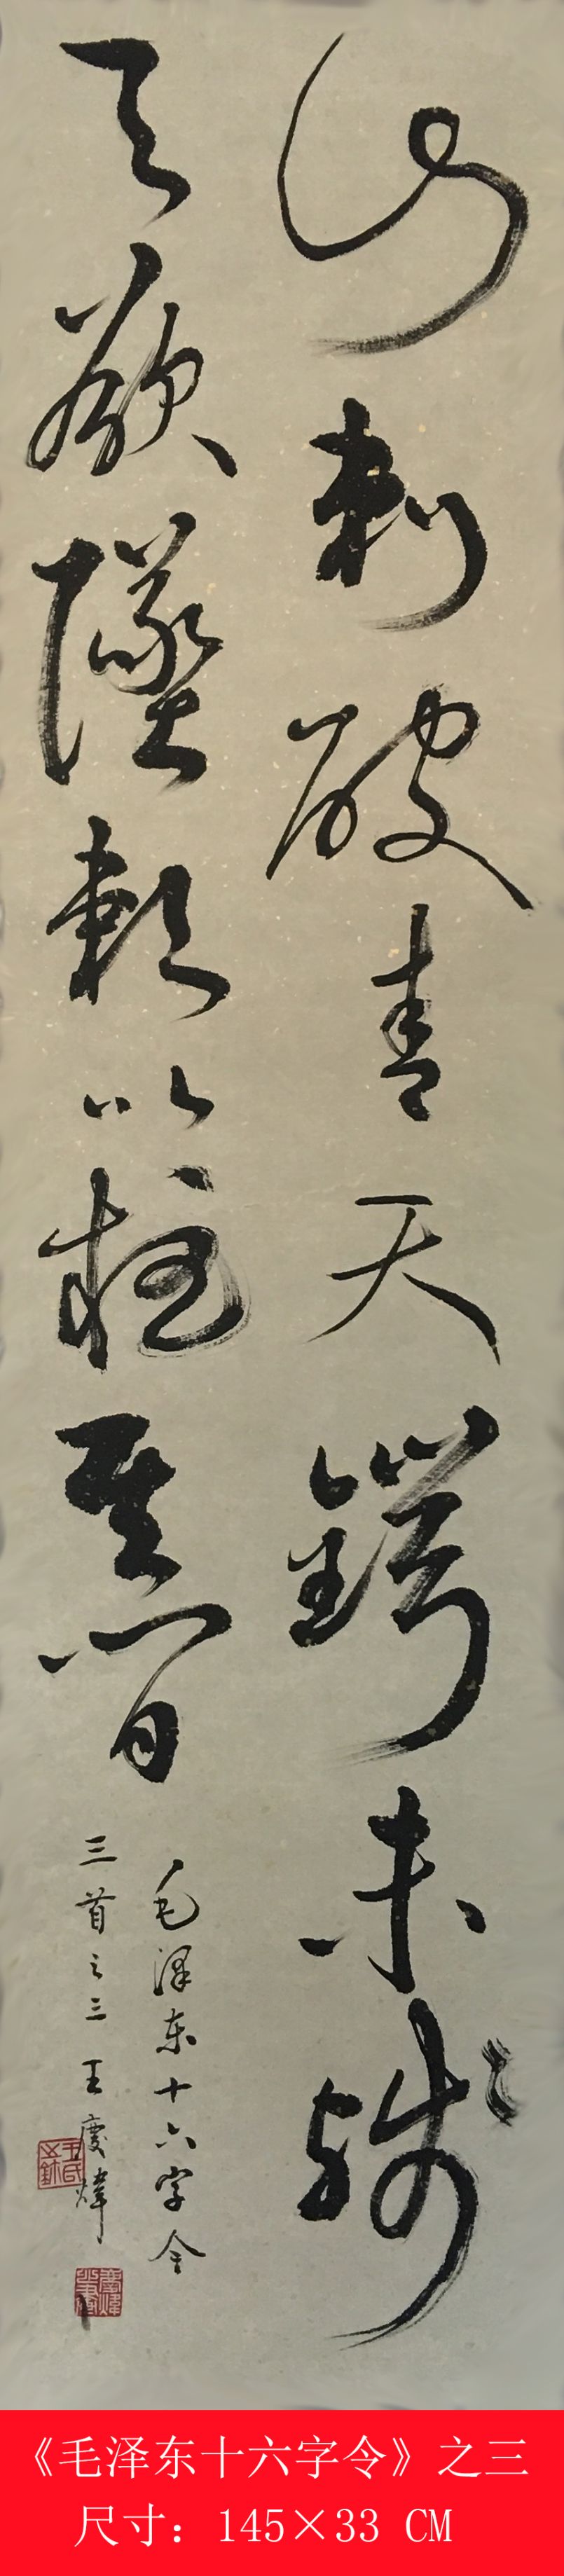 山刺破青天鍔未殘
天欲墜賴以柱其間
毛泽东十六字令
三首之三 王慶煒
《毛泽东十六字令》之三
尺寸：145×33 CM